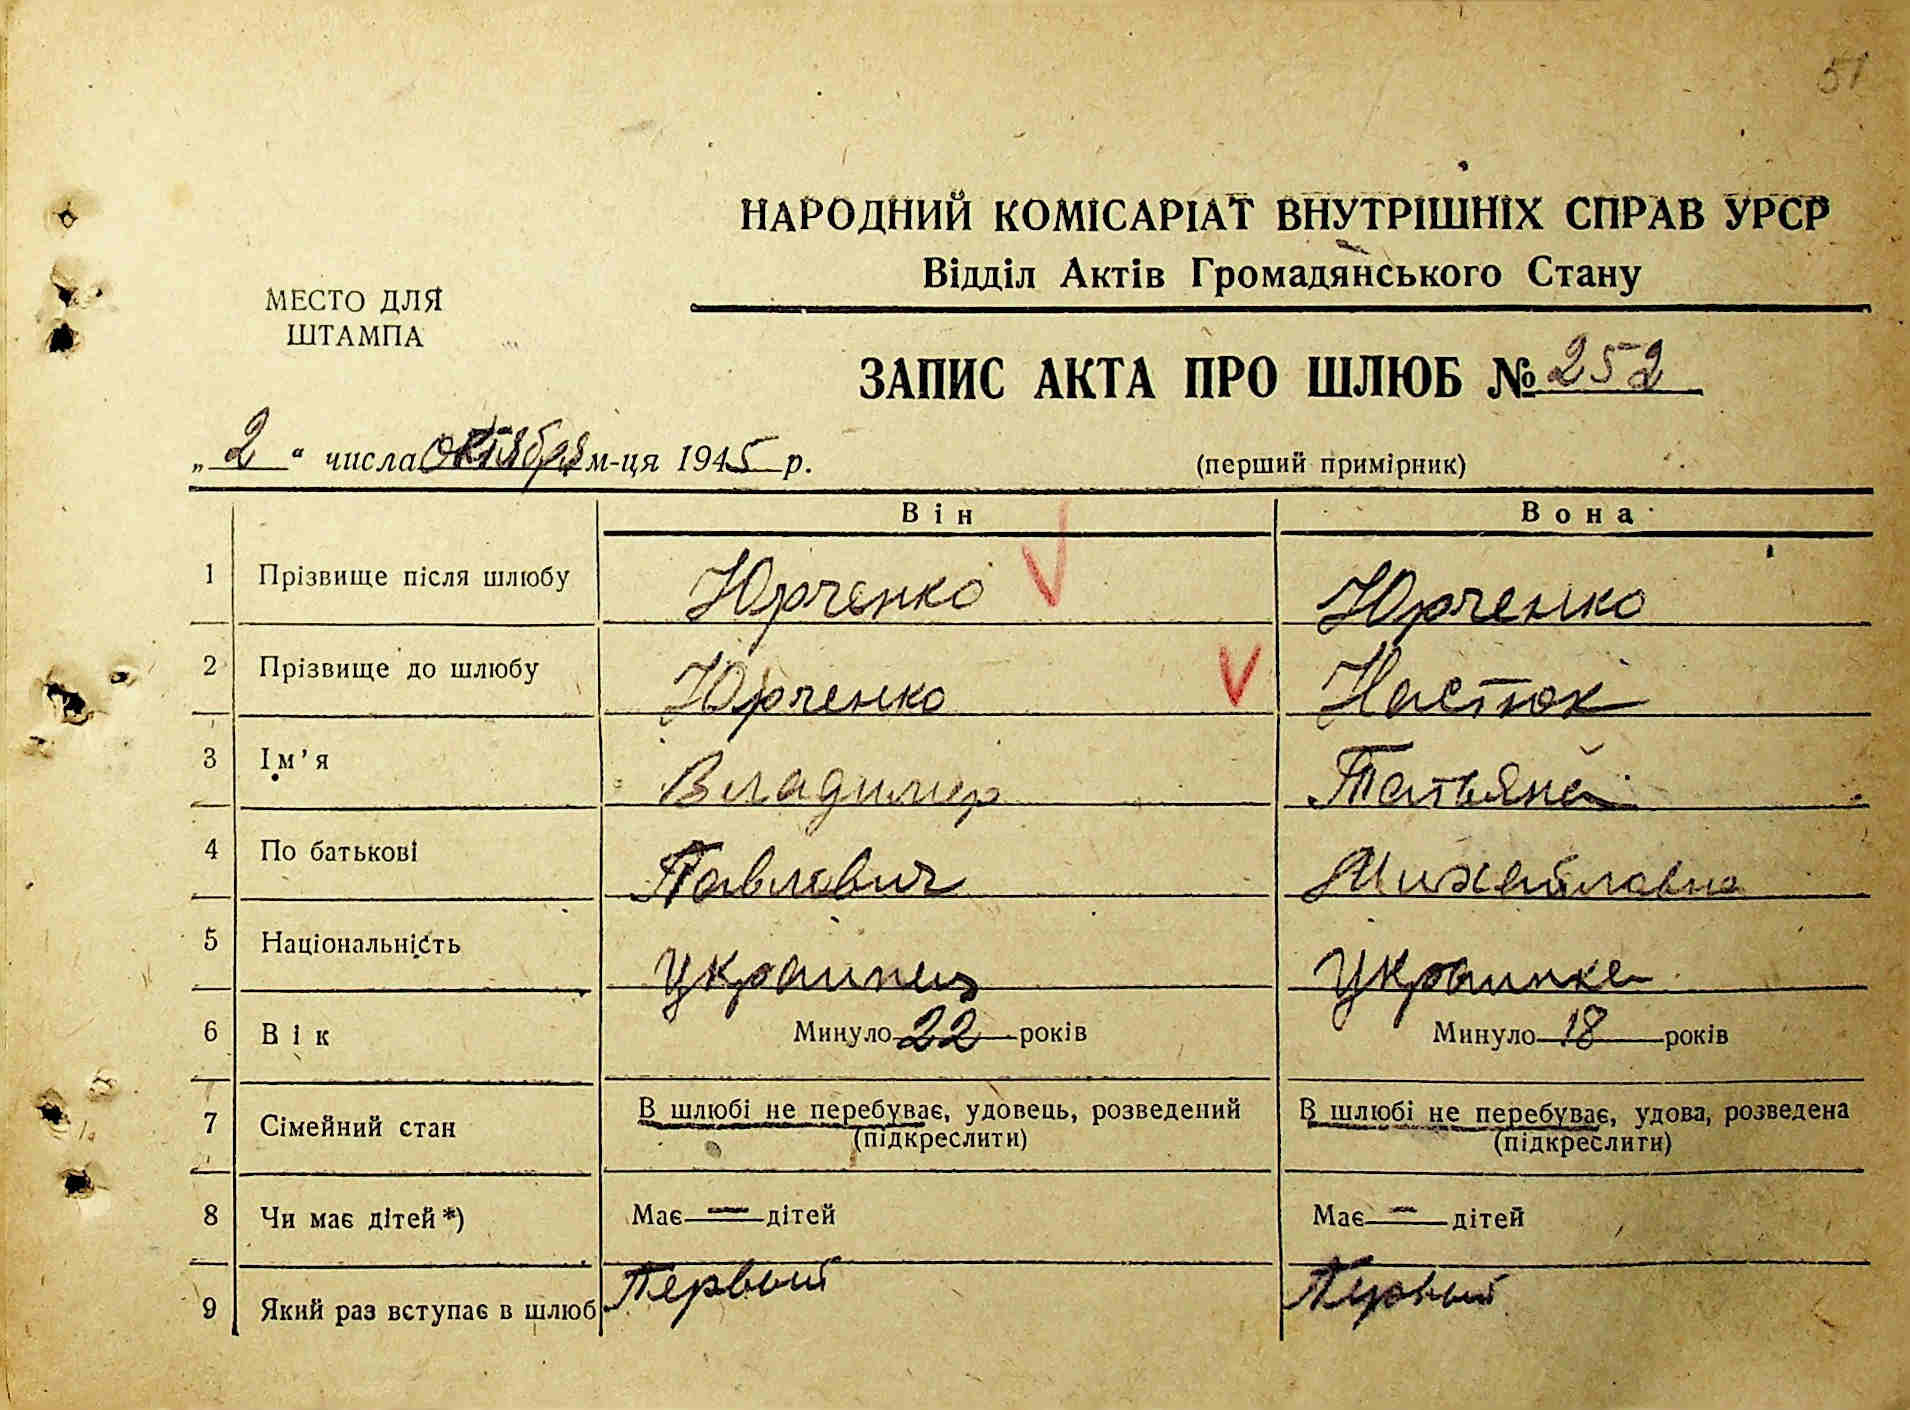 51
НАРОДНИЙ КОМІСАРІАТ ВНУТРІШНІХ СПРАВ УРСР
Відділ Актів Громадянського Стану
МЕСТО ДЛЯ
ШТАМПА
ЗАПИС АКТА ПРО ШЛЮБ № 252
„2“ числа октября м-ця 1945 р.
(перший примірник)
Він Вона
1 Прізвище після шлюбу Юрченко Юрченко
2 Прізвище до шлюбу Юрченко Настюк
3 Ім'я Владимир Татьяна
4 По батькові Павлович Михайловна
5 Національність Украинец Украинка
6 Вік Минуло 22 років Минуло 18 років
7 Сімейний стан В шлюбі не перебуває, удовець, розведений (підкреслити) В шлюбі не перебуває, удова, розведена (підкреслити)
8 Чи має дітей*) Має — дітей Має — дітей
9 Який раз вступає в шлюб Первый Первый